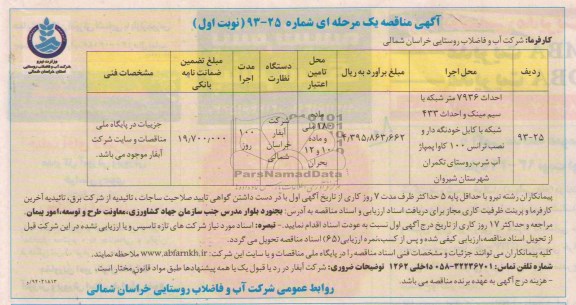 آگهی مناقصه یک مرحله ای شماره ۲۵-۹۳ (نوبت اول)
کارفرما: شرکت آب و فاضلاب روستایی خراسان شمالی
وزارت نیرو
شرکت آب و فاضلاب روستایی
استان خراسان شمالی
ردیف
محل اجرا
مبلغ برآورد به ریال
محل تامین اعتبار
دستگاه نظارت
مدت اجرا
مبلغ تضمین ضمانت نامه بانکی
مشخصات فنی
۹۳-۲۵
احداث ۷۹۳۶ متر شبکه با
سیم مینک و احداث ۴۳۳
شبکه با کابل خودنگه دار و
نصب ترانس ۱۰۰ کاوا پمپاژ
آب شرب روستای تکمران
شهرستان شیروان
۴,۳۹۵,۸۶۳,۶۶۲
ماده ۱۸۰ ملی و ماده ۱۰ و ۱۲ بحران
شرکت آبفار خراسان شمالی
۱۰۰ روز
۱۹,۷۰۰,۰۰۰
جزییات در پایگاه ملی
مناقصات و سایت شرکت
آبفار موجود می باشد.
ParsNamadData
پیمانکاران رشته نیرو با حداقل پایه ۵ حداکثر ظرف مدت ۷ روز کاری از تاریخ آگهی اول با در دست داشتن گواهی تایید صلاحیت ساجات ، تائیدیه از شرکت برق، تائیدیه آخرین
کارفرما و پرینت ظرفیت کاری مجاز برای دریافت اسناد ارزیابی و اسناد مناقصه به آدرس: بجنورد بلوار مدرس جنب سازمان جهاد کشاورزی،معاونت طرح و توسعه،امور پیمان
مراجعه و حداکثر ۱۷ روز کاری از تاریخ درج آگهی اول نسبت به عودت اسناد اقدام نمایید. - تبصره: اسناد مورد نیاز شرکت های تازه تاسیس و یا ارزیابی نشده در این شرکت قبل
از تحویل اسناد مناقصه،ارزیابی کیفی شده و پس از کسب،نمره ارزیابی(۶۵) اسناد مناقصه تحویل می گردد.
کلیه پیمانکاران می توانند جزئیات و مشخصات فنی اسناد مناقصه را در پایگاه ملی مناقصات و یا سایت این شرکت: www.abfarnkh.ir ملاحظه نمایند.
شماره تلفن تماس : ۳۲۲۳۶۷۰۱-۰۵۸ داخلی ۱۲۶۲ توضیحات ضروری: شرکت آبفار در رد یا قبول یک یا همه پیشنهادها طبق مواد قانون مختار است.
- هزینه درج آگهی به عهده برنده مناقصه می باشد.
روابط عمومی شرکت آب و فاضلاب روستایی خراسان شمالی